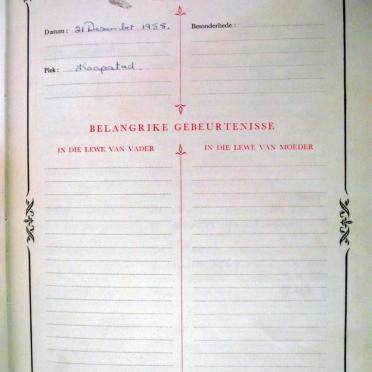 Datum: 21 Desember 1958.
Besonderhede:
Plek: Kaapstad.
BELANGRIKE GEBEURTENISSE
IN DIE LEWE VAN VADER
IN DIE LEWE VAN MOEDER